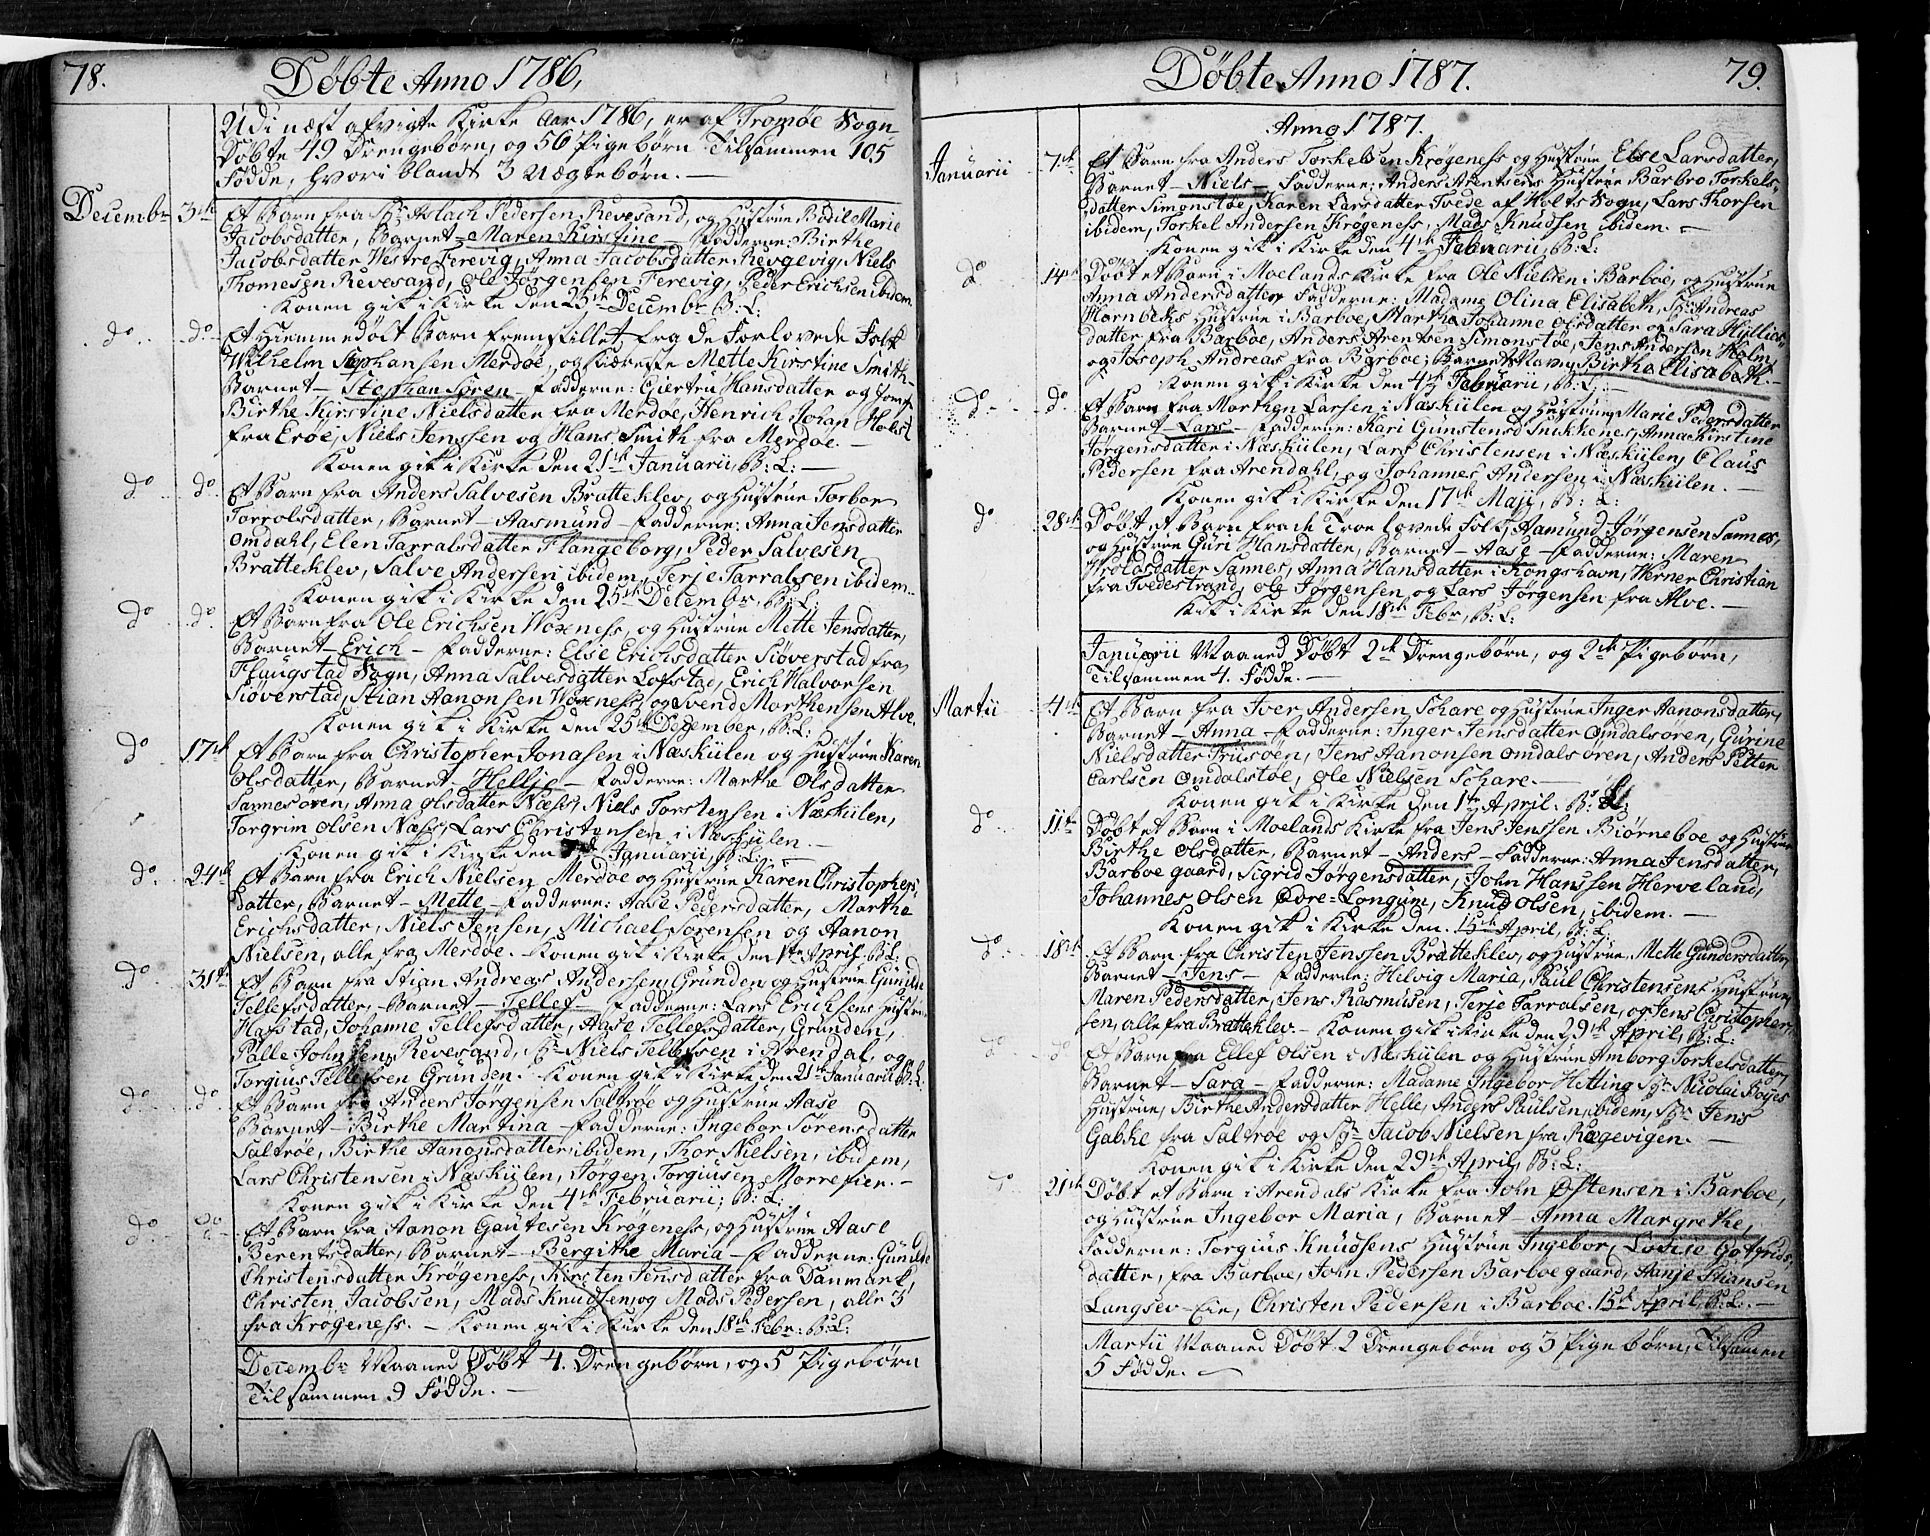 78.
Döbte Anno 1786,
Udi næst afvigte Kirke Aar 1786, er af Tromøe Sogn
Döbte 49 Drengebørn, og 56 Pigebørn Tilsammen 105
Födde, hvoriblandt 3 Uægtebørn. —
Decembr 3die Et Barn fra Sr Aslach Pedersen Revesand, og Hustrue Bodil Marie
Jacobsdatter, Barnet — Maren Kirstine — Fadderne: Birthe
Jacobsdatter Vestre Ferevig, Anna Jacobsdatter Revgevig, Niels
Thomesen Revesand, Ole Jørgensen Ferevig, Peder Erichsen ibidem.
Konen gik i Kirke den 25de Decembr B: L:
do do Et Hiemmedöbt Barn fremstillet fra de Forlovede Folk
Wilhelm Stephansen Merdøe, og Kæreste Mette Kirstine Smith
Barnet — Stephan Sören — Fadderne: Giertru Hansdatter og Jomf:
Birthe Kirstine Nielsdatter fra Merdøe, Henrich Johan Holst
fra Erøe, Niels Jenssen og Hans Smith fra Merdøe. —
Konen gik i Kirke den 21de Januarii, B: L: —
do do Et Barn fra Anders Salvesen Bratteklev, og Hustrue Torbor
Torrolsdatter, Barnet — Aasmund — Fadderne: Anna Jensdatter
Omdahl, Elen Tarralsdatter Flangeborg, Peder Salvesen
Bratteklev, Salve Andersen ibidem, Terje Tarralsen ibidem.
Konen gik i Kirke den 25de Decembr, B: L:
do do Et Barn fra Ole Erichsen Woxness, og Hustrue Mette Jensdatter,
Barnet — Erich — Fadderne: Else Erichsdatter Siøverstad fra
Flaugstad Sogn, Anna Salvesdatter Lofstad, Erich Halvorsen
Siøverstad, Stian Aanonsen Woxness, og Svend Morthensen Alve.
Konen gik i Kirke den 25de December, B: L:
do 17de Et Barn fra Christopher Jonasen i Næskiilen og Hustrue Karen
Olsdatter, Barnet — Hellje — Fadderne: Marthe Olsdatter
Sannesøren, Anna Olsdatter Næss, Niels Torstensen i Næskiilen,
Torgrim Olsen Næss, Lars Christensen i Næskiilen. —
Konen gik i Kirke den Januarii, B: L: —
do 24de Et Barn fra Erich Nielsen Merdøe og Hustrue Karen Christophers
datter, Barnet — Mette — Fadderne: Aase Pedersdatter, Marthe
Erichsdatter, Niels Jensen, Michael Sorensen og Aanon
Nielsen, alle fra Merdøe. Konen gik i Kirke den 1te April B: L:
do 31te Et Barn fra Stian Andreas Andersen Grunden og Hustrue Gunild
Tellefsdatter, Barnet — Tellef — Fadderne: Lars Erichsens Hustrue
Hafstad, Johanne Tellefsdatter, Aase Tellefsdatter, Grunden,
Palle Johnsen Revesand, Sr Niels Tellefsen i Arendal, og
Torgius Tellefsen Grunden. Konen gik i Kirke den 21de Januarii B: L:
do do Et Barn fra Anders Jørgensen Saltrøe og Hustrue Aase
Barnet — Birthe Martina — Fadderne: Ingebor Sörensdatter
Saltrøe, Birthe Aanonsdatter ibidem, Thor Nielsen, ibidem,
Lars Christensen i Næskiilen, Jörgen Torgiusen Morrefien. —
Konen gik i Kirke den 4de Februarii; B: L:
do do Et Barn fra Aanon Gautesen Krøgeness, og Hustrue Aase
Berentsdatter, Barnet — Bergithe Maria — Fadderne: Gunild
Christensdatter Krøgeness, Kirsten Jensdatter fra Danmark,
Christen Jacobsen, Mads Knudsen, og Mads Pedersen, alle 3
fra Krøgeness. — Konen gik i Kirke den 18de Febr: B: L:
Decembr Maaned Döbt 4. Drengebørn, og 5 Pigebørn
Tilsammen 9 Födde. —
Döbte Anno 1787.
79.
Anno 1787.
Januarii 7de Et Barn fra Anders Torkelsen Krøgeness og Hustrue Else Larsdatter,
Barnet — Niels — Fadderne: Anders Arentsens Hustrue Barbro Torkels-
datter Simonstøe, Karen Larsdatter Tvede af Holts Sogn, Lars Thorsen
ibidem, Torkel Andersen Krøgeness, Mads Knudsen ibidem. —
Konen gik i Kirke den 4de Februarii, B: L:
do 14de Döbt et Barn i Moelands Kirke fra Ole Nielsen i Barboe, og Hustrue
Anna Andersdatter Fadderne: Madame Olina Elisabeth, Sr Andreas
Hornbeks Hustrue i Barboe, Marthe Johanne Olsdatter og Sara Hyllies-
datter fra Barboe, Anders Arentsen Simonstøe, Jens Andersen Holm,
og Joseph Andreas fra Barboe; Barnets Navn, Birthe Elisabeth.
Konen gik i Kirke den 4de Februarii, B: L: —
do do Et Barn fra Morthen Larsen i Næskiilen og Hustrue Marie Pedersdatter
Barnet — Lars — Fadderne: Kari Gunstensd Snikkenes, Anna Kirstine
Jørgensdatter i Næskiilen, Lars Christensen i Næskiilen, Claus
Pedersen fra Arendahl, og Johannes Andersen i Næskiilen. —
Konen gik i Kirke den 17de Maji, B: L:
do 28de Döbt et Barn fra de Troelovede Folk, Aamund Jörgensen Sannes,
og Hustrue Guri Hansdatter, Barnet — Aase — Fadderne: Maren
Wrolsdatter Sannes, Anna Hansdatter i Kongshavn, Werner Christian
fra Tvedestrand, Ole Jørgensen og Lars Jørgensen fra Alve. —
Gik i Kirke den 18de Febr, B: L:
Januarii Maaned Döbt 2de Drengebørn, og 2de Pigebørn,
Tilsammen 4. Födde. —
Martii 4de Et Barn fra Iver Andersen Schare og Hustrue Inger Aanonsdatter,
Barnet — Anna — Fadderne: Inger Jensdatter Omdalsøren, Gurine
Nielsdatter Friisøen, Jens Aanonsen Omdalsøren, Anders Petter
Carlsen Omdalstøe, Ole Nielsen Schare. —
Konen gik i Kirke den 1te April. B: L:
do 11te Döbt et Barn i Moelands Kirke fra Jens Jenssen Biørneboe og Hustrue
Birthe Olsdatter, Barnet — Anders — Fadderne: Anna Jensdatter,
Barboegaard, Sigrid Jørgensdatter, John Hanssen Herveland,
Johannes Olsen Øvre-Longum, Knud Olsen, ibidem. —
Konen gik i Kirke den 15de April, B: L:
do 18de Et Barn fra Christen Jenssen Bratteklev, og Hustrue, Mette Gundersdatter,
Barnet — Jens — Fadderne: Helvig Maria, Paul Christensens Hustrue,
Maren Pedersdatter, Jens Rasmusen, Terje Tarralsen, og Jens Christopher-
sen, alle fra Bratteklev. — Konen gik i Kirke den 29de April, B: L:
do do Et Barn fra Ellef Olsen i Næskiilen og Hustrue Amborg Torkelsdatter,
Barnet — Sara — Fadderne: Madame Ingebor Hetting Sr Nicolai Boyes
Hustrue, Birthe Andersdatter Helle, Anders Paulsen, ibidem, Sr Jens
Gabke fra Saltrøe og Sr Jacob Nielsen fra Rægevigen. —
Konen gik i Kirke den 29de April, B: L:
do 21de Döbt et Barn i Arendals Kirke fra John Østensen i Barboe,
og Hustrue Ingebor Maria, Barnet — Anna Margrethe,
Fadderne: Torgius Knudsens Hustrue Ingebor, Lovise Gotfrids-
datter, fra Barboe, John Pedersen Barboegaard, Aanje Stiansen
Langsev-Eie, Christen Pedersen i Barboe. 15de April, B: L: —
Martii Maaned Döbt 2 Drengebørn og 3 Pigebørn, Tilsamen
5 Födde. —